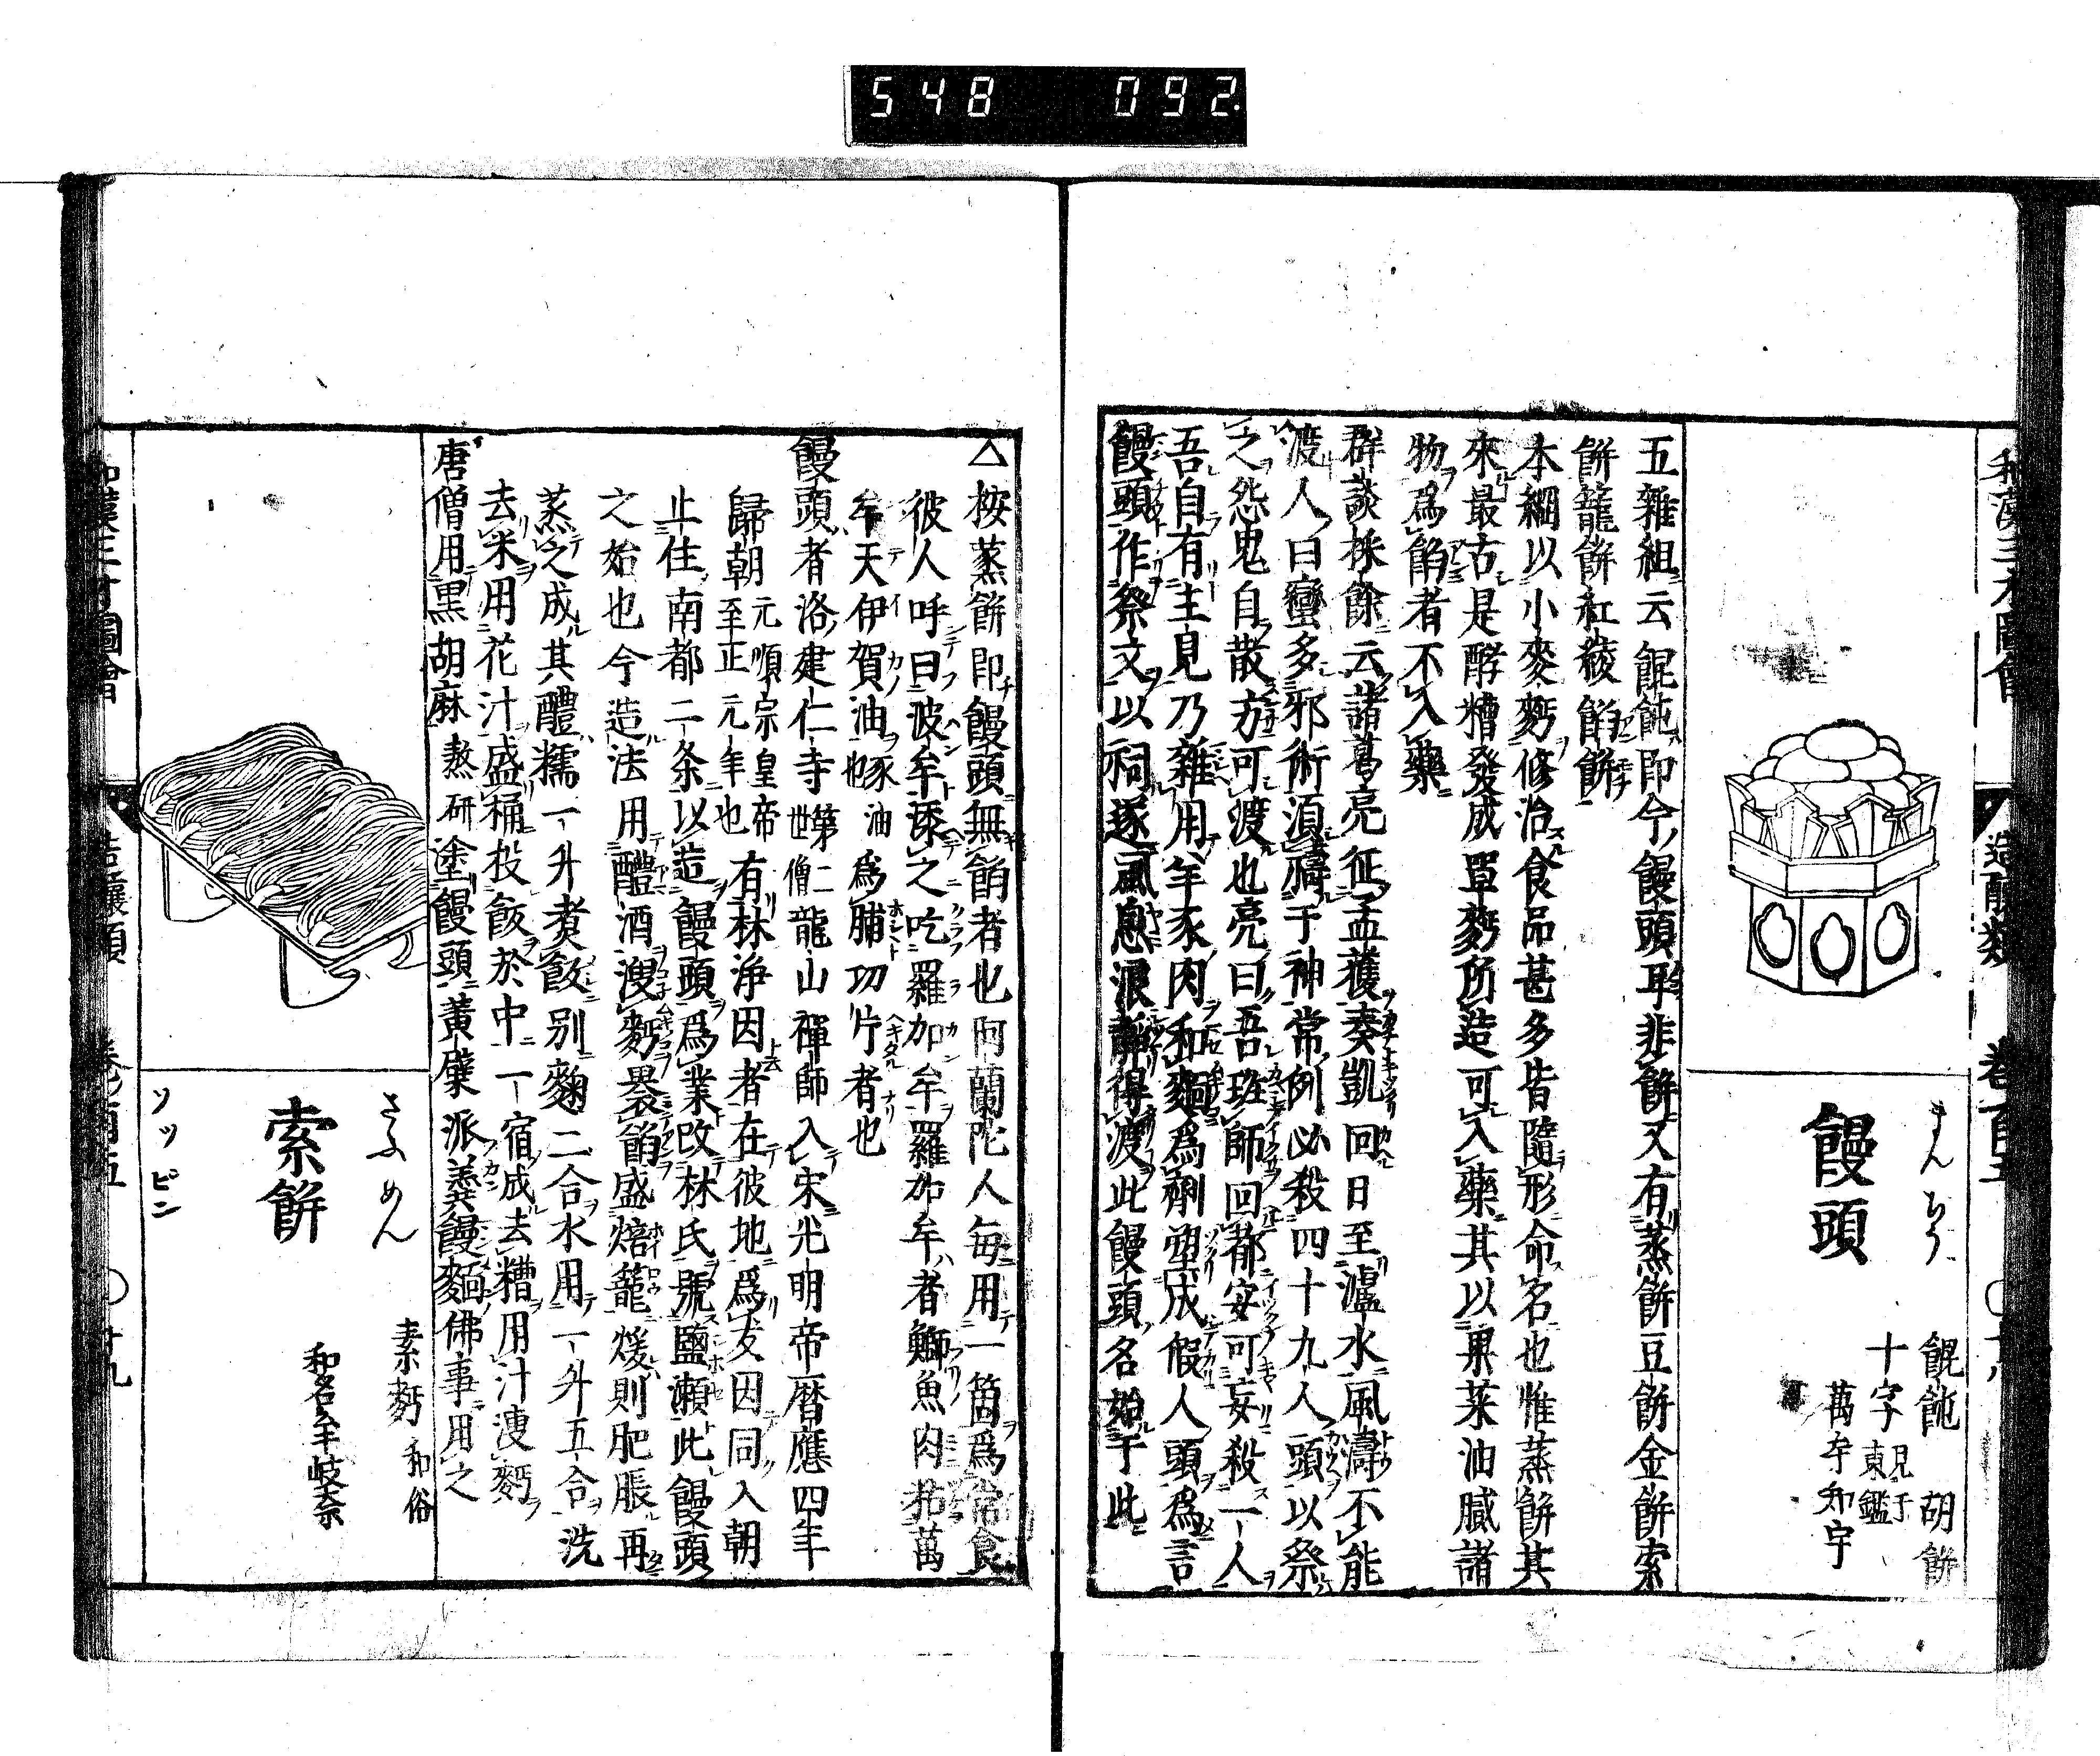 548 092
和漢三才圖會
造釀類
卷百五
まんぢう
饅頭
餛飩 胡餅
十字 見于東鑑
萬牟知宇
五雜組云餛飩即今饅頭耳非餅又有蒸餅豆餅金餅索
餅籠餅紅綾餡餅
本綱以小麥麪修治食品甚多皆隨形命名也惟蒸餅其
來最古是酵糟發成單麪所造可入藥其以果菜油膩諸
物爲餡者不入藥
群談採餘云諸葛亮征孟獲奏凱回日至瀘水風濤不能
渡人曰蠻多邪術須禱于神常例必殺四十九人頭以祭
之怨鬼自散方可渡也亮曰吾班師回都安可妄殺一人
吾自有主見乃雜用羊豕肉和麵爲劑塑成假人頭爲言
饅頭作祭文以祠遂風息浪靜得渡此饅頭名始于此
△按蒸餅即饅頭無餡者也阿蘭陀人毎用一箇爲常食
彼人呼曰波牟添之吃羅加牟羅加牟者鰤魚肉
牟天伊賀油豕油也爲脯切片者也
饅頭者洛建仁寺第二世僧龍山禪師入宋光明帝曆應四年
歸朝元順宗皇帝至正元年也有林淨因者在彼地爲友因同入朝
止住南都二条以造饅頭爲業改林氏號鹽瀬此饅頭
之始也今造法用醴酒溲麪裹餡盛焙籠煖則肥脹再
蒸之成其醴糯一升煮飯別麹二合水用一升五合洗
去米用花汁盛桶投飯於中一宿成去糟用汁溲麪
唐僧用黒胡麻熬研塗饅頭黄檗派羹饅麵佛事用之
さふめん
索餅
ソッピン
素麪 和俗
和名牟岐奈
和漢三才圖會
造釀類
卷百五
〇廿九